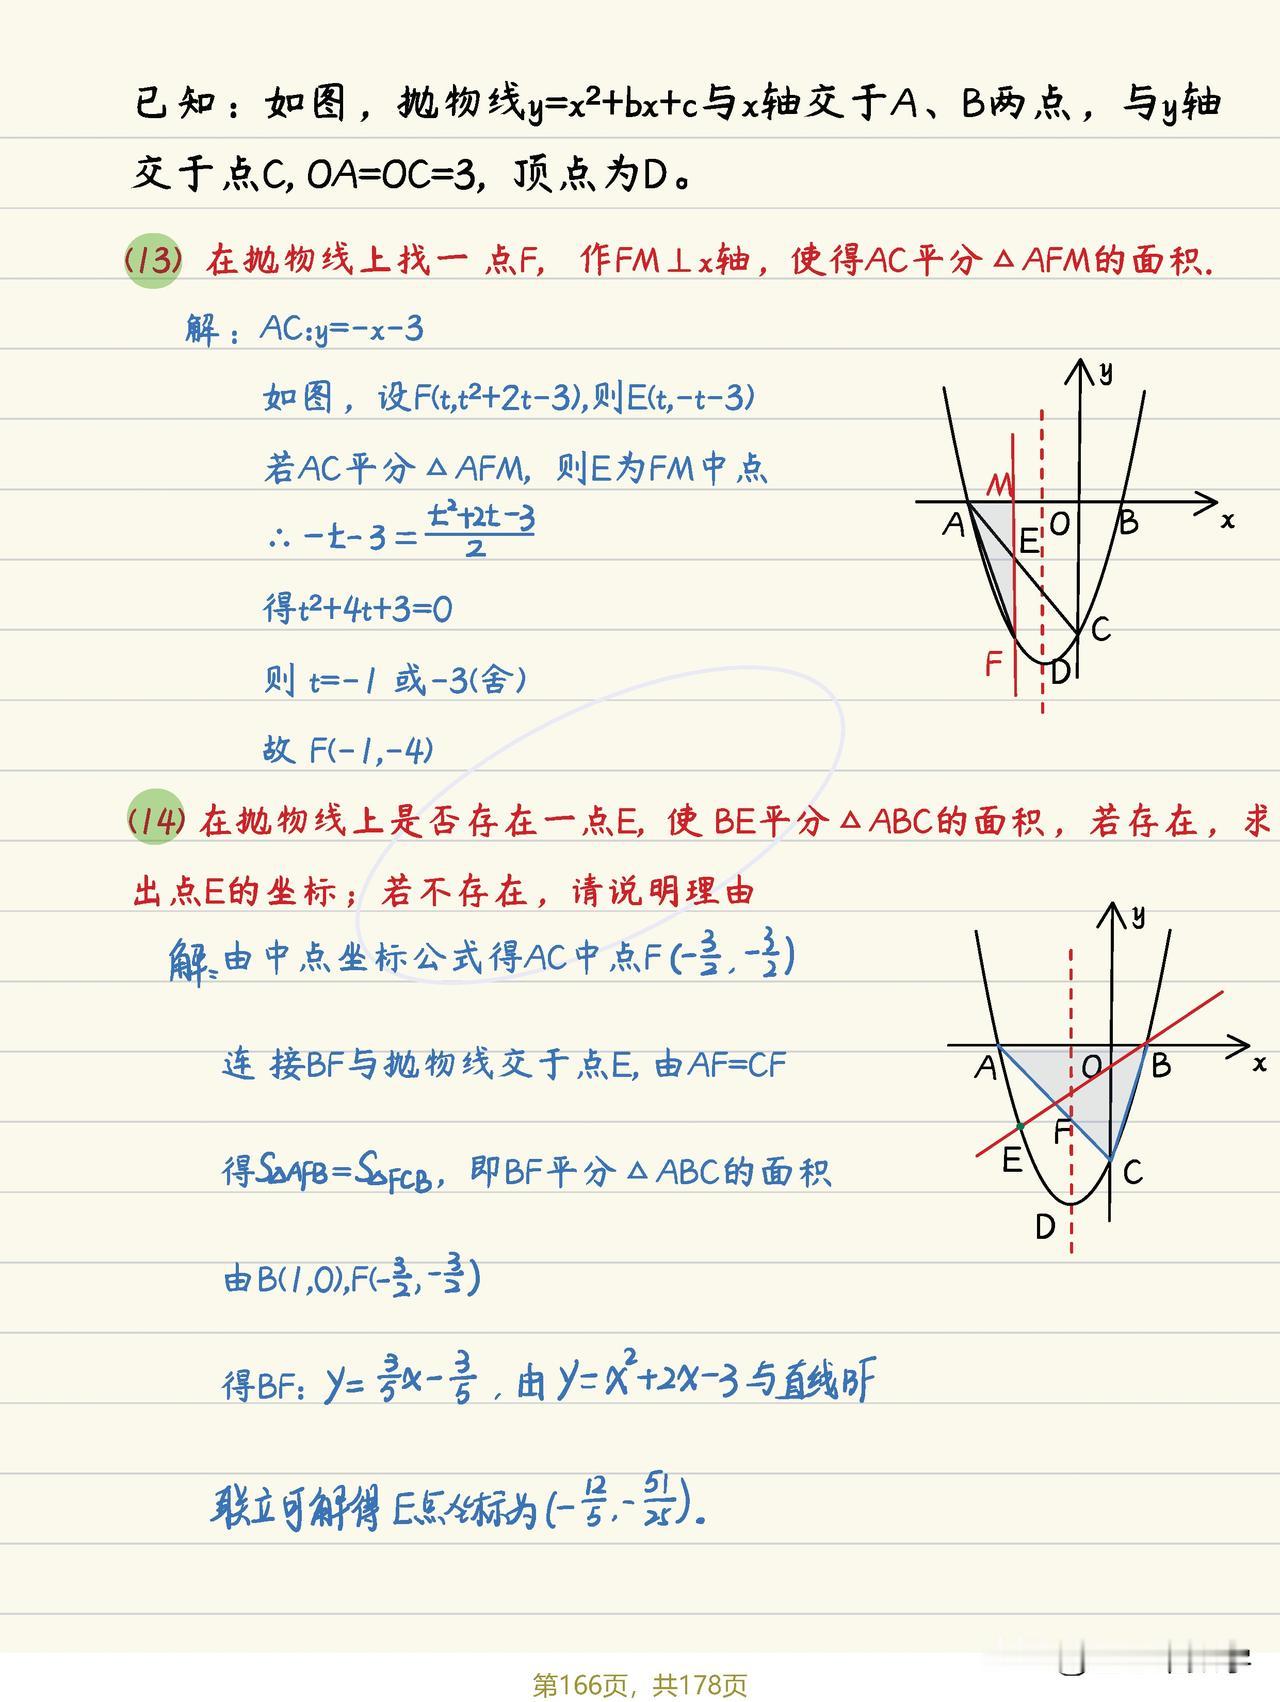 已知：如图，抛物线y=x²+bx+c与x轴交于A、B两点，与y轴
交于点C, OA=OC=3, 顶点为D。
(13) 在抛物线上找一点F, 作FM⊥x轴，使得AC平分△AFM的面积.
解：AC:y=-x-3
如图，设F(t,t²+2t-3),则E(t,-t-3)
若AC平分△AFM, 则E为FM中点
∴ -t-3 = (t²+2t-3)/2
得t²+4t+3=0
则 t=-1 或-3(舍)
故 F(-1,-4)
y
M
A
E
O
B
x
C
F
D
(14) 在抛物线上是否存在一点E, 使BE平分△ABC的面积，若存在，求
出点E的坐标；若不存在，请说明理由
解: 由中点坐标公式得AC中点F(-3/2, -3/2)
连接BF与抛物线交于点E, 由AF=CF
得S△AFB=S△FCB, 即BF平分△ABC的面积
由B(1,0),F(-3/2, -3/2)
得BF: y=3/5x-3/5, 由y=x²+2x-3与直线BF
联立可解得E点坐标为(-12/5, -51/25).
y
A
O
B
x
F
E
C
D
第166页，共178页